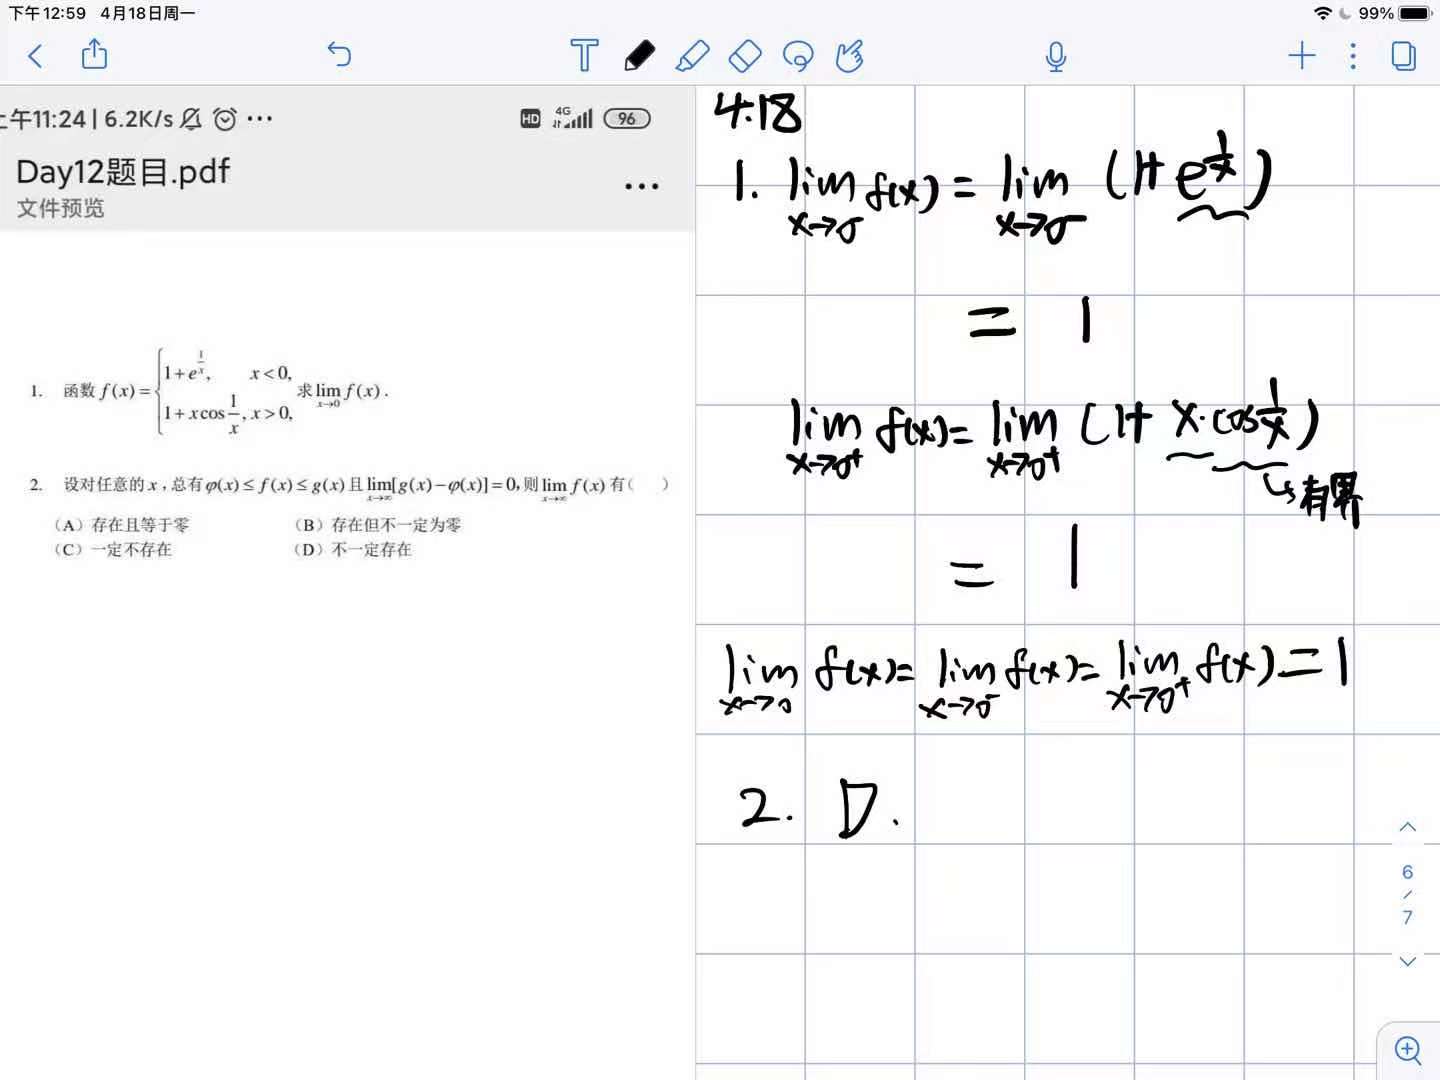 下午12:59 4月18日周一
99%
上午11:24 | 6.2K/s ...
HD 4G 96
Day12题目.pdf
...
文件预览
1. 函数 f(x) = { 1+e^{1/x}, x<0, 1+x cos 1/x, x>0, 求 lim_{x→0} f(x).
2. 设对任意的 x,总有 φ(x) ≤ f(x) ≤ g(x) 且 lim_{x→∞} [g(x)−φ(x)] = 0, 则 lim_{x→∞} f(x) 有( )
(A) 存在且等于零 (B) 存在但不一定为零
(C) 一定不存在 (D) 不一定存在
4.18
1. lim_{x→0⁻} f(x) = lim_{x→0⁻} (1+e^{1/x})
= 1
lim_{x→0⁺} f(x) = lim_{x→0⁺} (1+x·cos 1/x)
→有界
= 1
lim_{x→0} f(x) = lim_{x→0⁻} f(x) = lim_{x→0⁺} f(x) = 1
2. D.
6
/
7